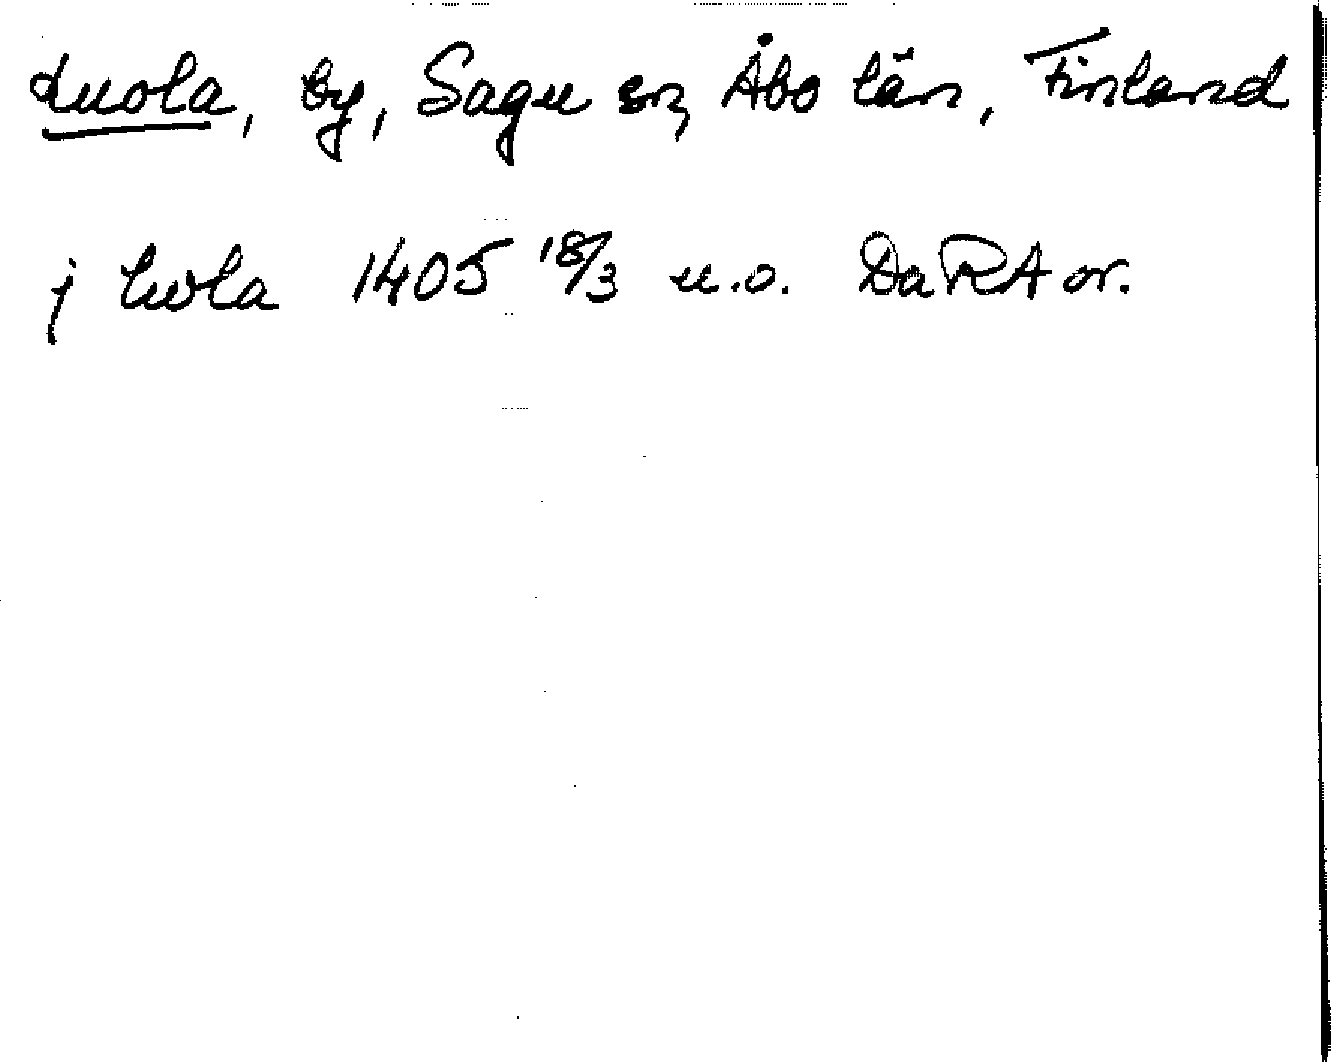 Luola, by, Sagu sn, Åbo län, Finland
j lwla 1405 18/3 u.o. DaRA or.